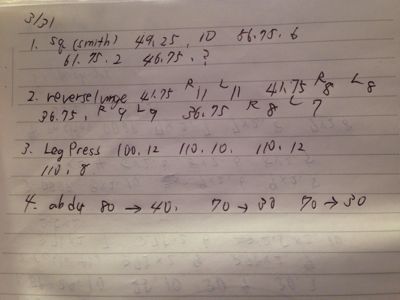 3/31
1. Sq (smith) 49.25, 10 56.75. 6
61.75. 2 46.75. ?
2. reverse lunge 41.75 R 11 L 11 41.75 R 8 L 8
36.75. R 9 L 9 36.75 R 8 L 7
3. Leg Press 100. 12 110. 10. 110. 12
110. 8
4. abdu 80 → 40. 70 → 30 70 → 30